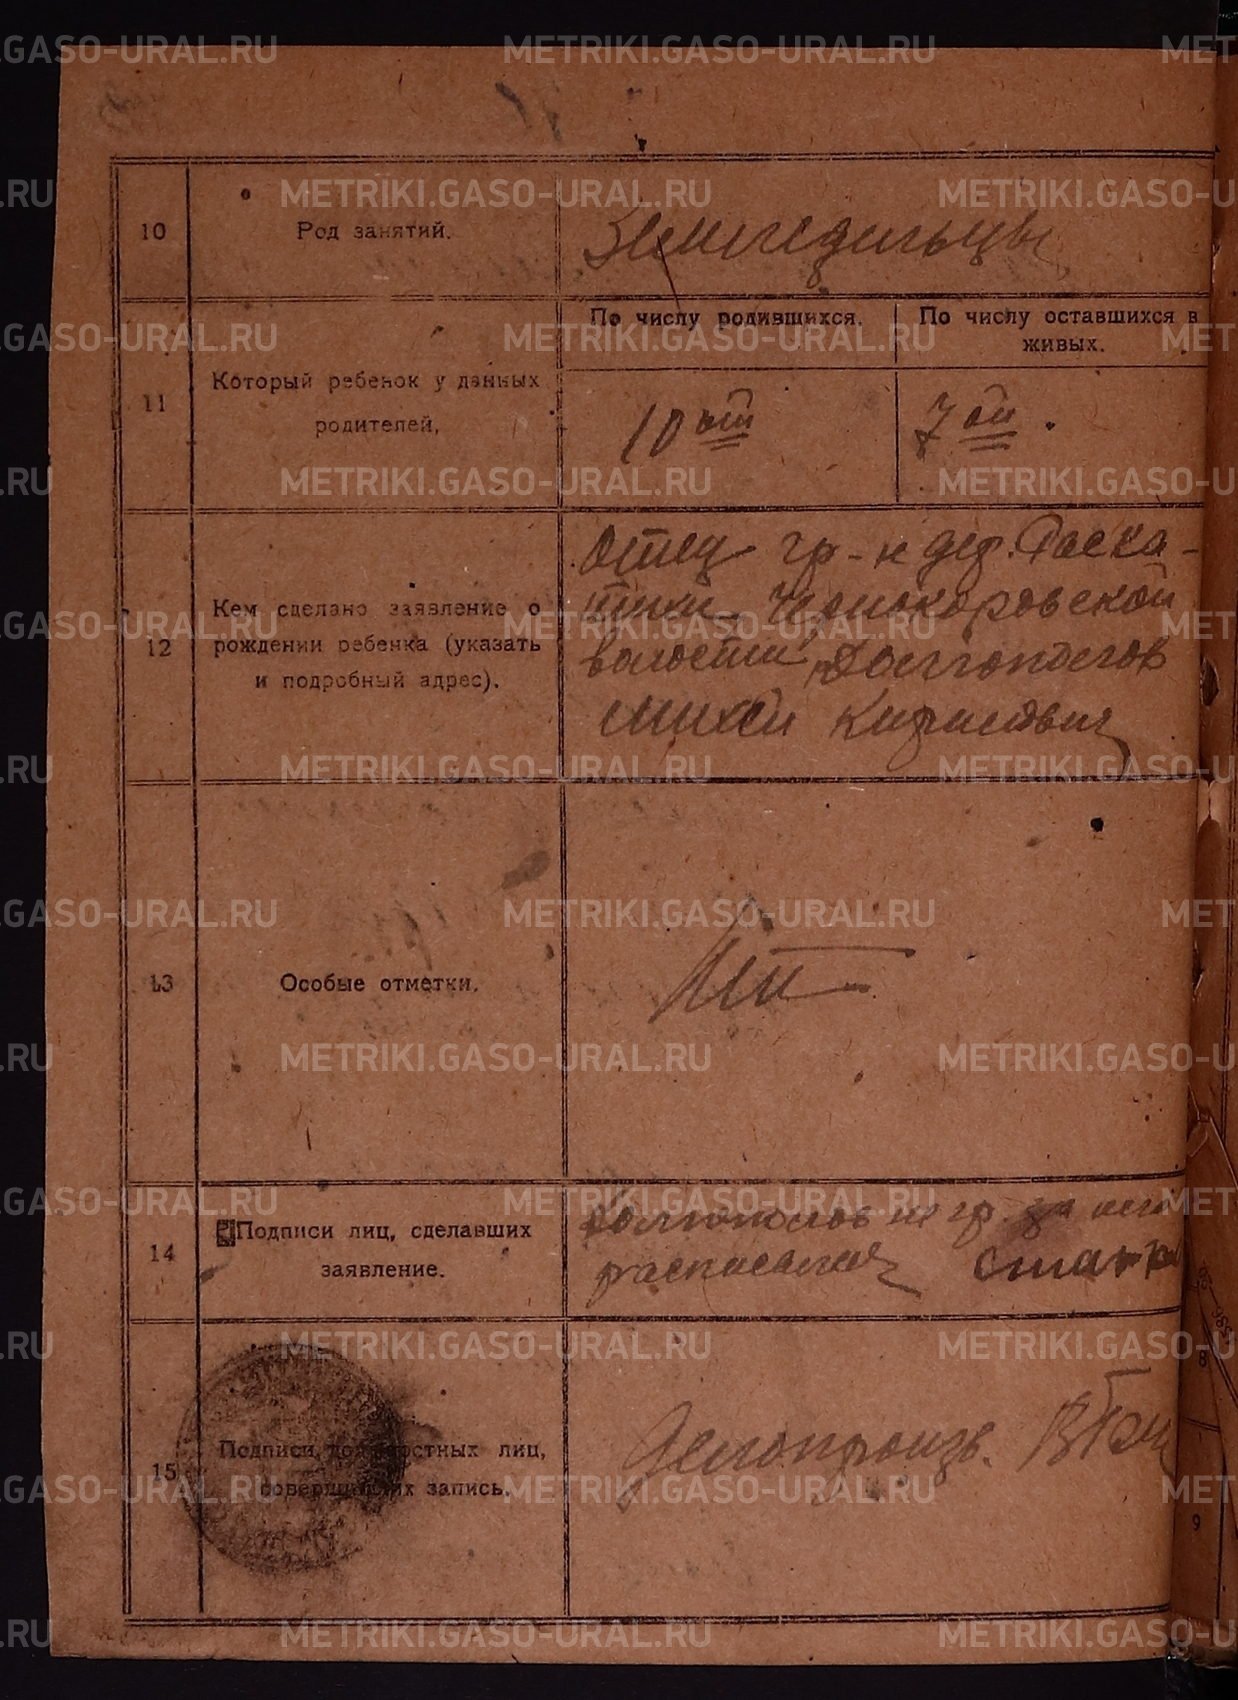 METRIKI.GASO-URAL.RU
10
Род занятий.
Земледельцы
11
Который ребенок у данных
родителей.
По числу родившихся.
По числу оставшихся в
живых.
10 ый
7 ой.
12
Кем сделано заявление о
рождении ребенка (указать
и подробный адрес).
Отец гр-н дер. Раска-
тихи Чернокоровской
волости Долгополов
Михей Кирилович
13
Особые отметки.
Нет
14
Подписи лиц, сделавших
заявление.
Долгополов не гр. за него
расписался
15
Подписи должностных лиц,
совершивших запись.
Делопроизв.
8
9